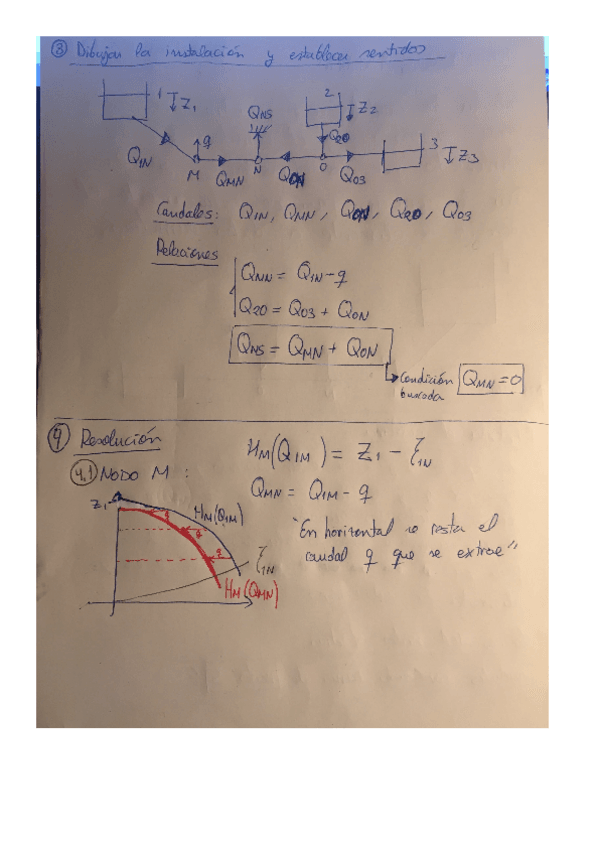 ③ Dibujar la instalación y establecer sentidos
1 Z₁
2 Z₂
3 Z₃
Q1N
q
M
QMN
QNS
N
QON
Q20
O
Q03
Caudales: Q1N, QMN, QON, Q20, Q03
Relaciones
QMN = Q1N - q
Q20 = Q03 + QON
QNS = QMN + QON
Condición buscada QMN = 0
④ Resolución
4.1 NODO M:
HM(Q1M) = Z₁ - ξ1N
QMN = Q1M - q
"En horizontal se resta el
caudal q que se extrae"
Z₁
HM(Q1M)
q
q
q
ξ1N
HM(QMN)